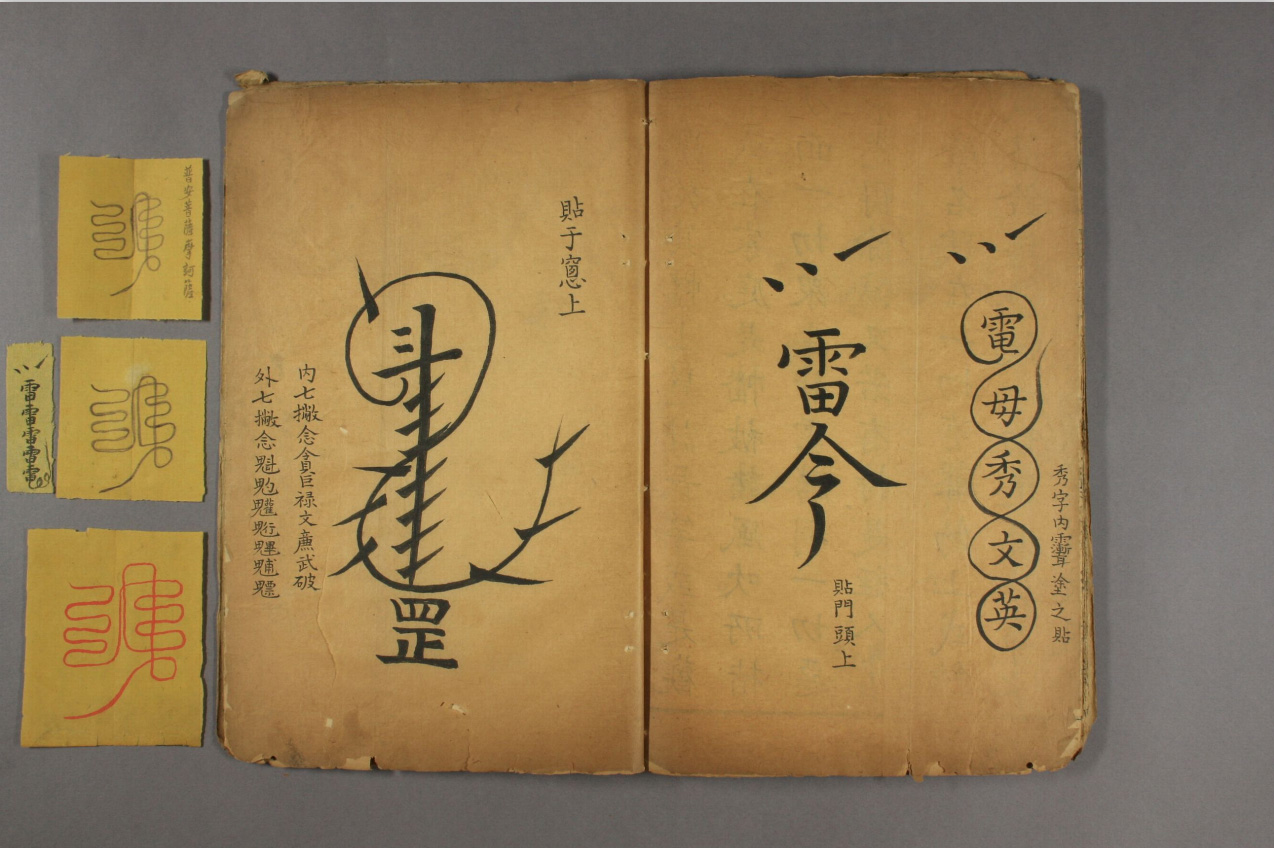 電
毋
秀
文
英
秀字内䨺塗之貼
雷令
貼門頭上
貼于窓上
斗
罡
内七撇念貪巨禄文廉武破
外七撇念
普安菩薩摩訶薩
雷
雷
雷
雷
電